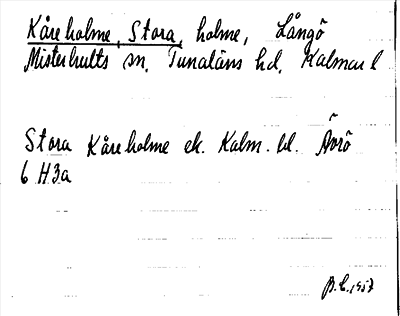 Kåreholme, Stora, holme, Långö
Misterhults sn, Tunaläns hd, Kalmar l
Stora Kåreholme ek. Kalm. bl. Ävrö
6 H3a
1957